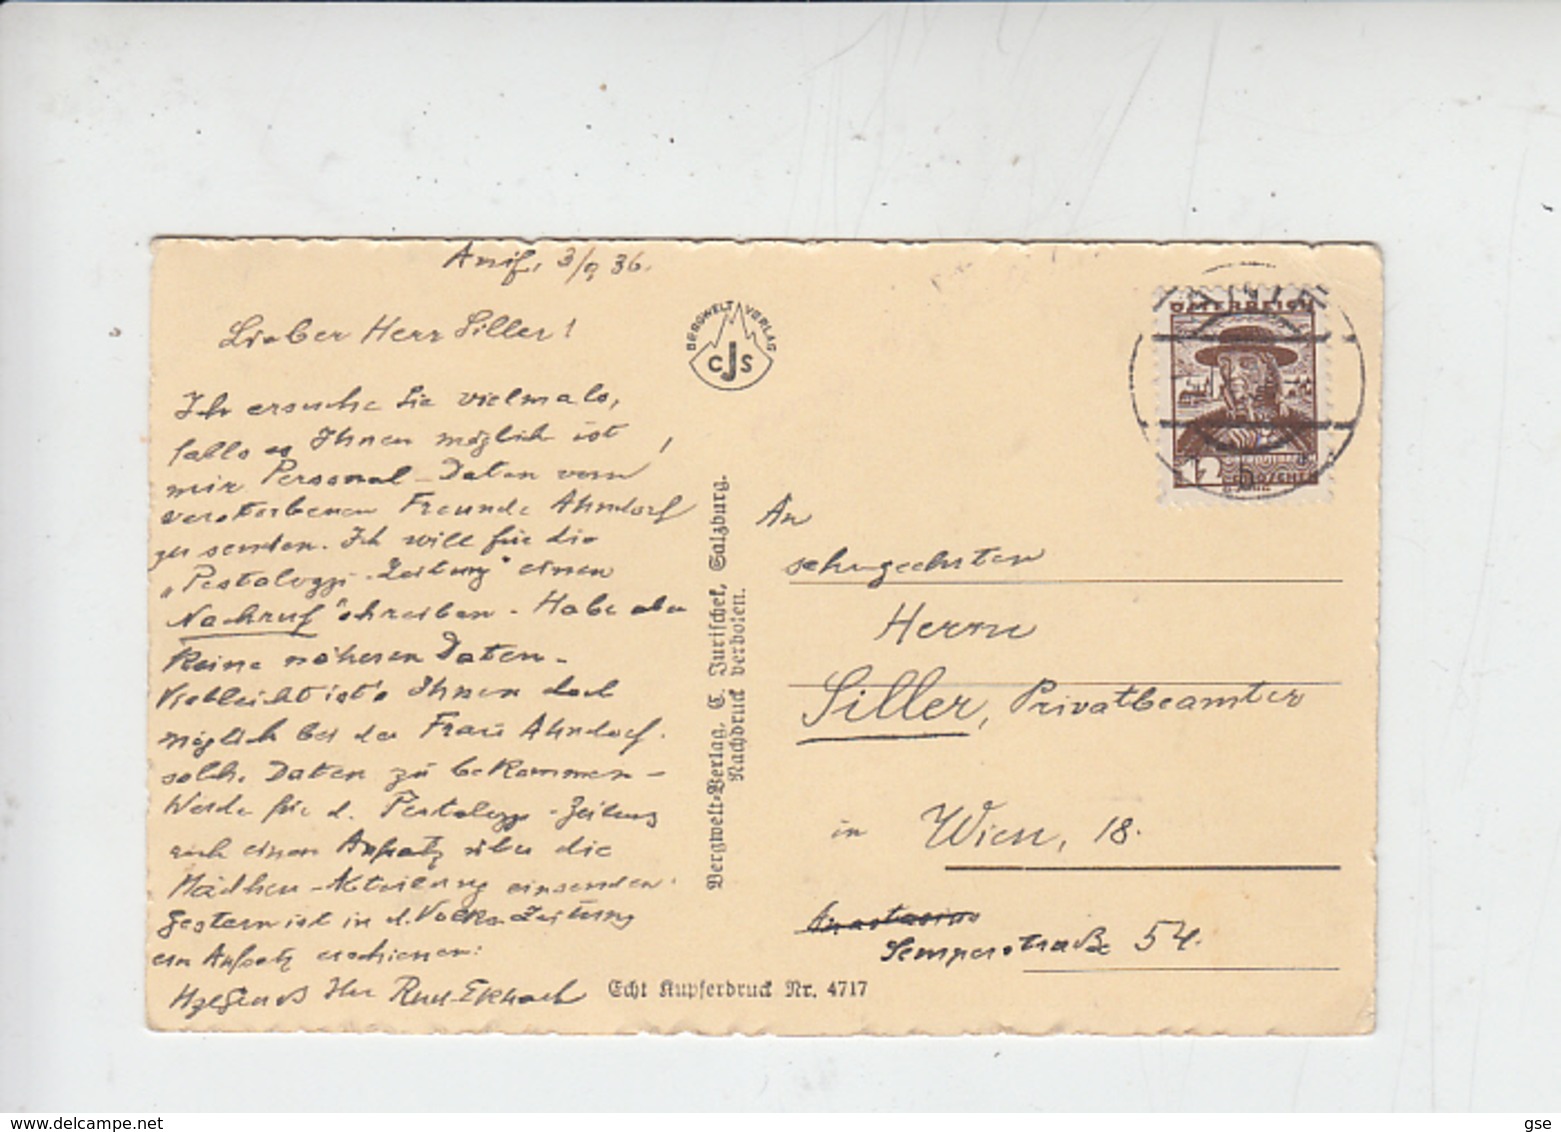 Anif, 3/9 36.
Lieber Herr Siller!
Ich ersuche Sie vielmals,
falls es Ihnen möglich ist,
mir Personal-Daten vom
verstorbenen Freunde Ahndorf
zu senden. Ich will für die
„Pestalozzi-Zeitung" einen
Nachruf schreiben. Habe aber
keine näheren Daten.
Vielleicht ist's Ihnen doch
möglich bei der Frau Ahndorf.
solche Daten zu bekommen –
Werde für d. Pestalozzi-Zeitung
auch einen Aufsatz über die
Mädchen-Abteilung einsenden.
Gestern ist in d. Volks-Zeitung
ein Aufsatz erschienen:
Ihr
BERGWELT VERLAG
CJS
Bergwelt-Verlag, C. Jurischek, Salzburg.
Nachdruck verboten.
Echt Kupferdruck Nr. 4717
ÖSTERREICH
12 GROSCHEN
An
sehrgeehrten
Herrn
Siller, Privatbeamter
in Wien, 18.
Semperstraße 54.
gse